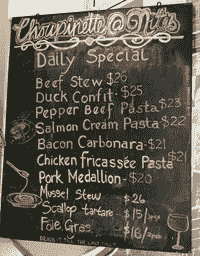 Choupinette @ Nites
Daily Special
Beef Stew $26
Duck Confit - $25
Pepper Beef Pasta $23
Salmon Cream Pasta $22
Bacon Carbonara - $21
Chicken fricassée Pasta $21
Pork Medallion - $20
Mussel Stew $26
Scallop tartare $15
Foie Gras $16